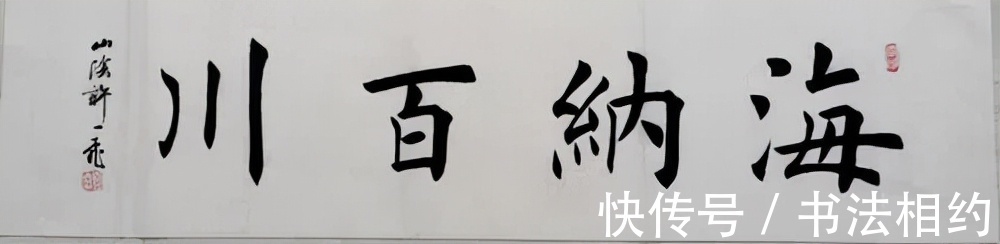 海納百川
山陰許一飛
快传号 / 书法相约